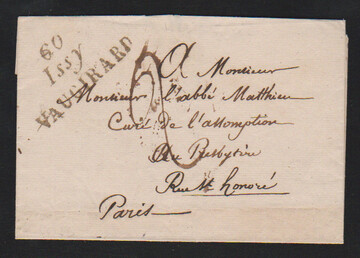 60
Issy
VAUGIRARD
A Monsieur
Monsieur l'abbé Matthieu
Curé de l'assomption
Au Presbytère
Rue St honoré
Paris